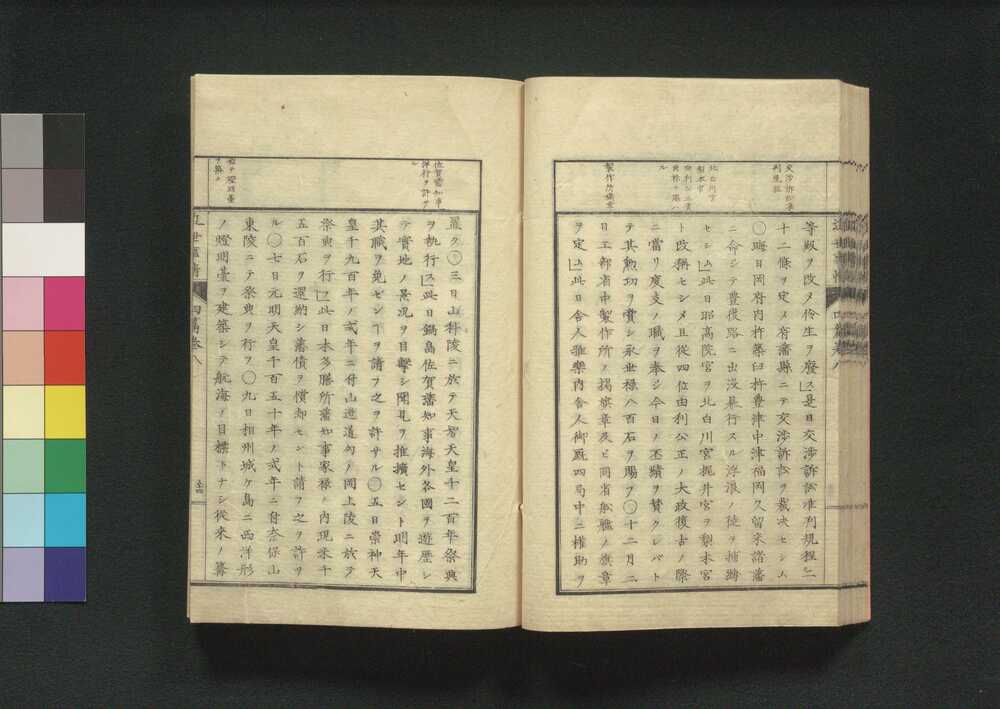 等級ヲ改メ伶生ヲ廢ス」是日交渉訴訟准判規程二
十二條ヲ定メ府藩縣ニテ交渉訴訟ヲ裁决セシム
〇晦日岡府内杵築臼杵豊津中津福岡久留米諸藩
ニ命シテ豊後路ニ出没暴行スル浮浪ノ徒ヲ捕縛
セシム」此日耶高院宮ヲ北白川宮梶井宮ヲ梨本宮
ト改稱セシメ且從四位由利公正ノ大政復古ノ際
ニ當リ度支ノ職ヲ奉シ今日ノ丕績ヲ賛クレバト
テ其勲功ヲ賞シ永世禄八百石ヲ賜フ〇十二月二
日工部省中製作所ノ掲旗章及ビ同省舩艦ノ旗章
ヲ定ム」此日舎人雅樂内舎人御厩四局中ニ權助ヲ
交渉訴訟准
判規程
北白川宮
梨本宮
由利公正賞
典禄ヲ賜ハ
ル
製作所旗章
置ク〇三日山科陵ニ於テ天智天皇千二百年祭典
ヲ執行ス」此日鍋島佐賀藩知事海外各國ヲ遊歴シ
テ實地ノ景况ヲ目撃シ聞見ヲ推擴セシト明年中
其職ヲ免ゼンヿヲ請フ之ヲ許サル〇五日崇神天
皇千九百年ノ式年ニ付山邉道勾ノ岡上陵ニ於テ
祭典ヲ行フ」此日本多膳所藩知事家禄ノ内現米千
五百石ヲ還納シ藩債ヲ償却セント請フ之ヲ許ス
ル〇七日元明天皇千百五十年ノ式年ニ付奈保山
東陵ニテ祭典ヲ行フ〇九日相州城ケ島ニ西洋形
ノ燈明臺ヲ建築シテ航海ノ目標トナシ從来ノ篝
佐賀藩知事
洋行ヲ許サ
ル
始テ燈明臺
ヲ築ク
四篇巻八